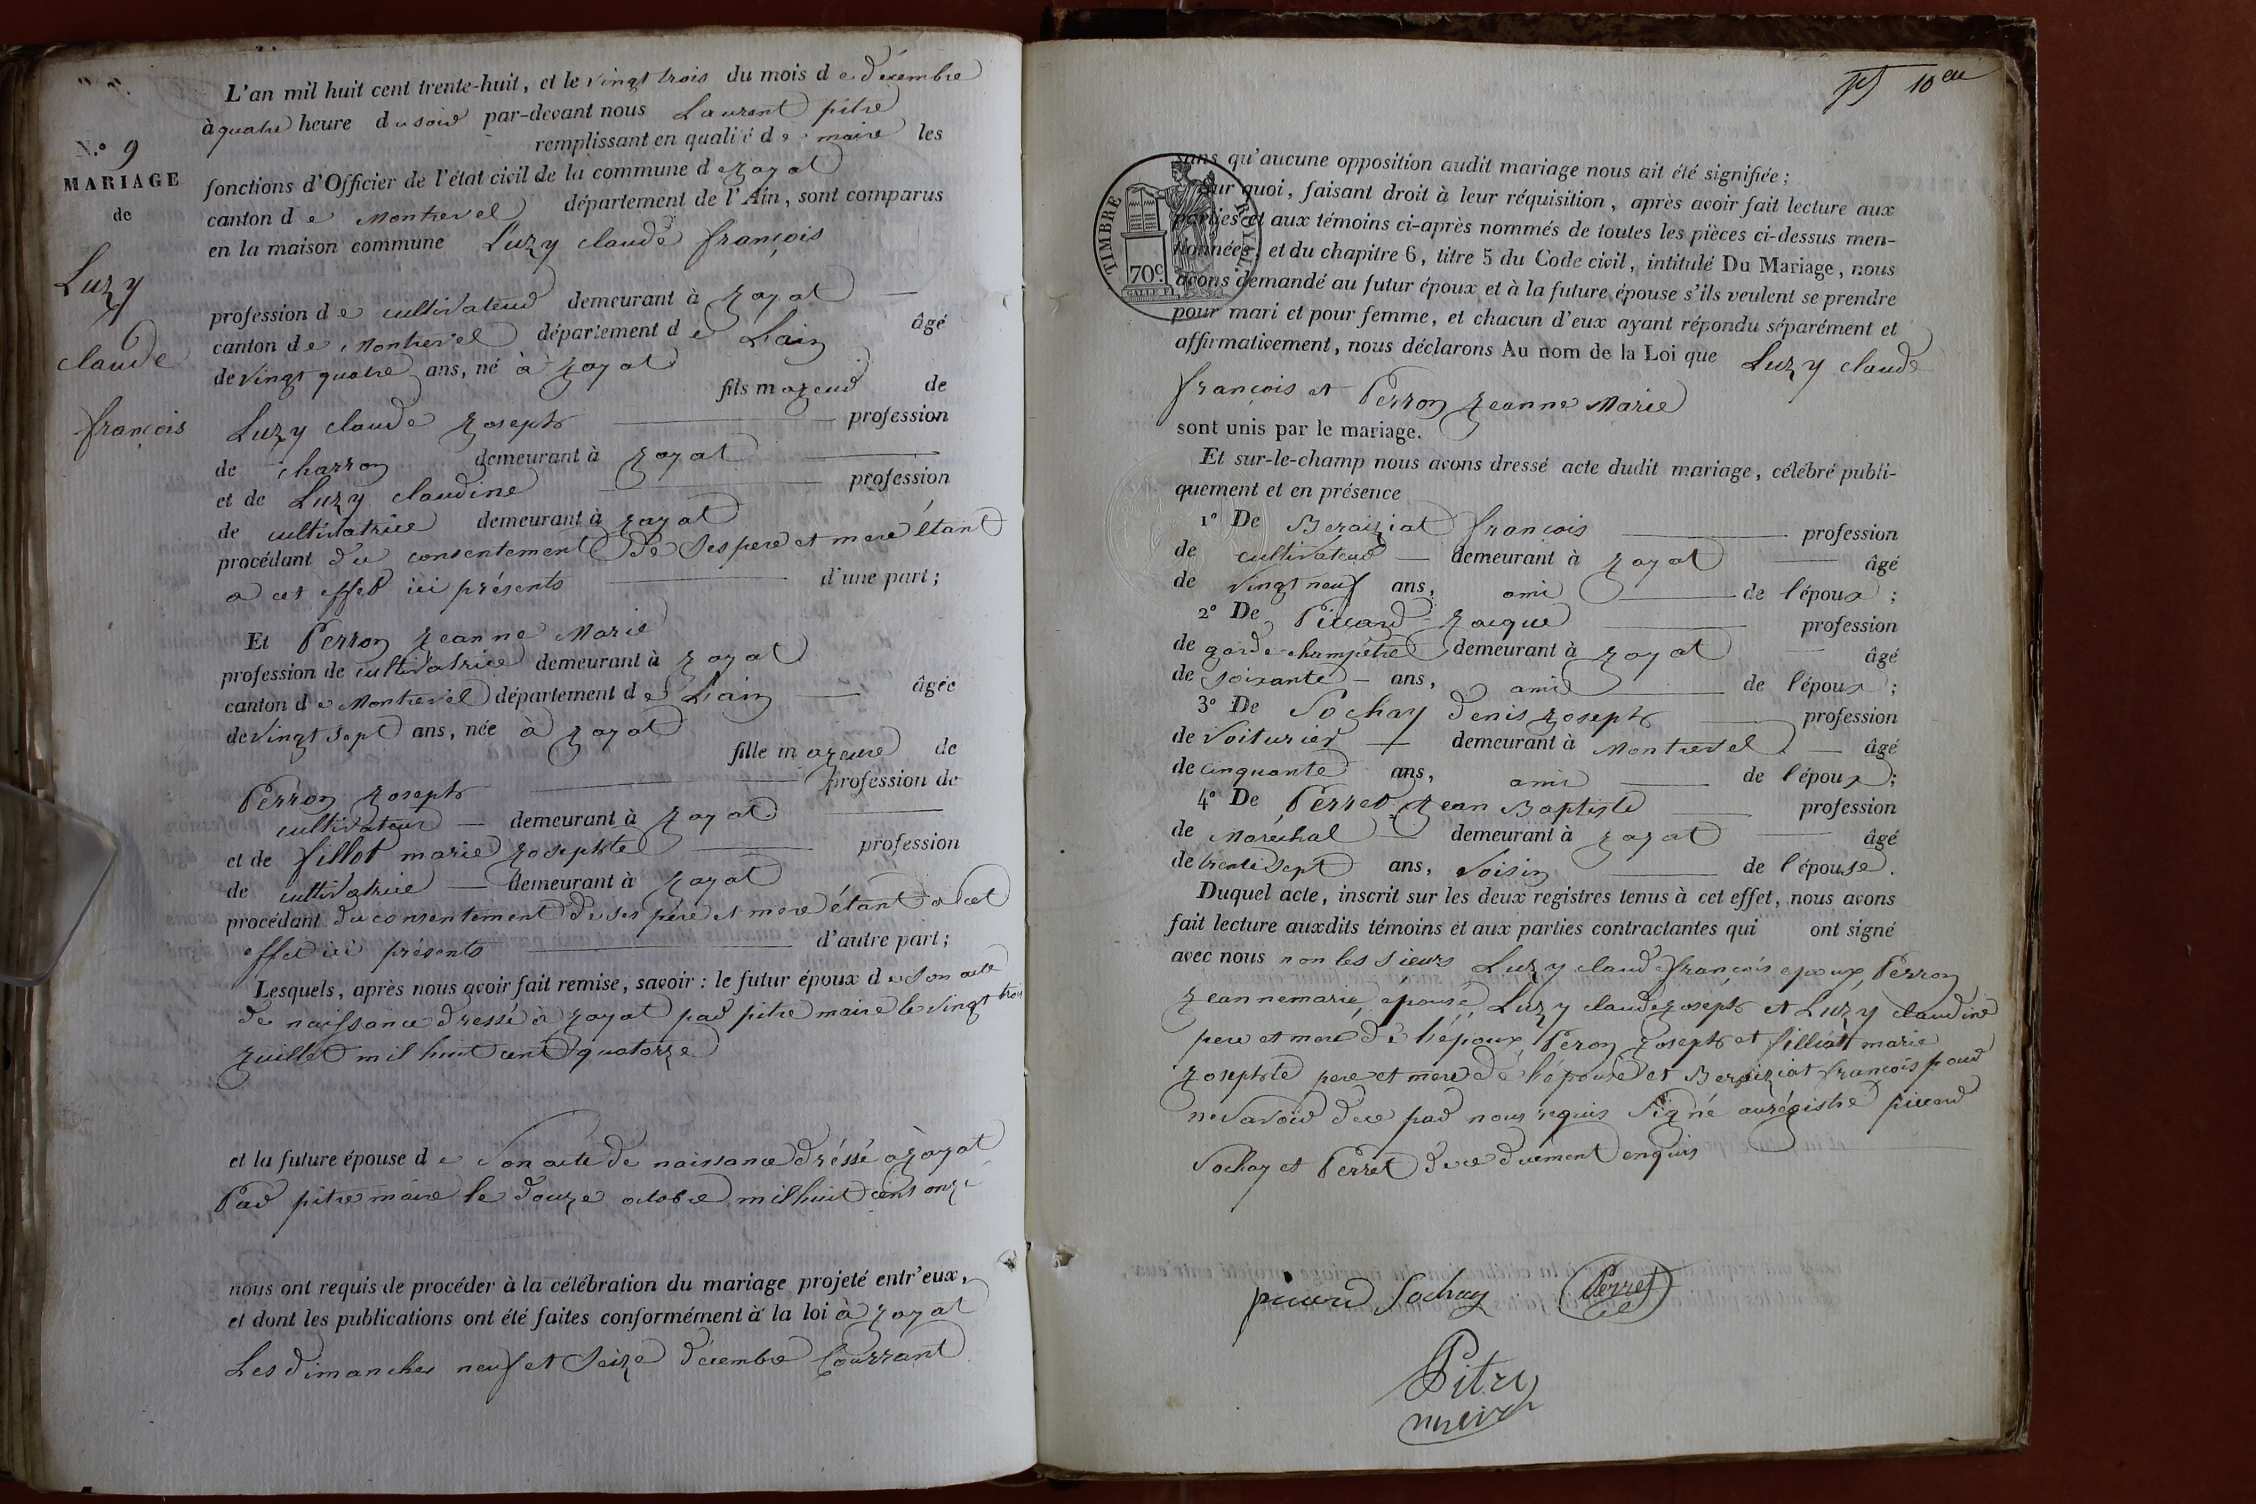 L'an mil huit cent trente-huit, et le vingt trois du mois de décembre
à quatre heure du soir par-devant nous Laurent pitre
remplissant en qualité de maire les
N.º 9
MARIAGE
de
Luzy
claude
françois
fonctions d'Officier de l'état civil de la commune de zayat
canton de Montrevel département de l'Ain, sont comparus
en la maison commune Luzy claude françois
profession de cultivateur demeurant à zayat
canton de Montrevel département de L'ain âgé
de vingt quatre ans, né à zayat
fils mazeur de
Luzy claude zoseph profession
de charron demeurant à zayat
et de Luzy claudine profession
de cultivatrice demeurant à zayat
procédant du consentement de ses pere et mere étant
a cet effet ici présents d'une part;
Et Perron zeanne Marie
profession de cultivatrice demeurant à zayat
canton de Montrevel département de L'ain âgée
de vingt sept ans, née à zayat
fille mazeure de
Perron zoseph profession de
cultivateur demeurant à zayat
et de fillot marie zosephte profession
de cultivatrice demeurant à zayat
procédant du consentement de ses père et mere étant a cet
effet ici présents d'autre part;
Lesquels, après nous avoir fait remise, savoir : le futur époux de son acte
de naissance dressé à zayat par pitre maire le vingt trois
zuillet mil huit cent quatorze
et la future épouse de son acte de naissance dréssé à zayat
Par pitre maire le douze octobre mil huit cent onze
nous ont requis de procéder à la célébration du mariage projeté entr'eux,
et dont les publications ont été faites conformément à la loi à zayat
Les dimanches neuf et Seize décembre Courrant
10eu
TIMBRE ROYAL
70c
sans qu'aucune opposition audit mariage nous ait été signifiée;
Sur quoi, faisant droit à leur réquisition, après avoir fait lecture aux
parties et aux témoins ci-après nommés de toutes les pièces ci-dessus men-
tionnées, et du chapitre 6, titre 5 du Code civil, intitulé Du Mariage, nous
avons demandé au futur époux et à la future épouse s'ils veulent se prendre
pour mari et pour femme, et chacun d'eux ayant répondu séparément et
affirmativement, nous déclarons Au nom de la Loi que Luzy claude
francois et Perron zeanne Marie
sont unis par le mariage.
Et sur-le-champ nous avons dressé acte dudit mariage, célébré publi-
quement et en présence
1º De Beraiziat francois profession
de cultivateur demeurant à zayat âgé
de vingt neuf ans, ami de l'époux;
2º De Piccard zacque profession
de garde champètre demeurant à zayat âgé
de soixante ans, ami de l'époux;
3º De Sochay denis zoseph profession
de voiturier demeurant à Montrevel âgé
de cinquante ans, ami de l'époux;
4º De Perret zean Baptiste profession
de Maréchal demeurant à zayat âgé
de trente sept ans, voisin de l'épouse.
Duquel acte, inscrit sur les deux registres tenus à cet effet, nous avons
fait lecture auxdits témoins et aux parties contractantes qui ont signé
avec nous non les sieurs Luzy claude françois epoux, Perron
zeanne marie, épouse, Luzy claude zoseph et Luzy claudine
pere et mere de l'époux, Peron zoseph et filliot marie
zosephte pere et mere de l'épouse et Beraiziat françois pour
ne savoir de ce par nous requis Signé au régistre piccard
Sochay et Perret de ce duement enquis
piccard Sochay Perret
Pitre
maire